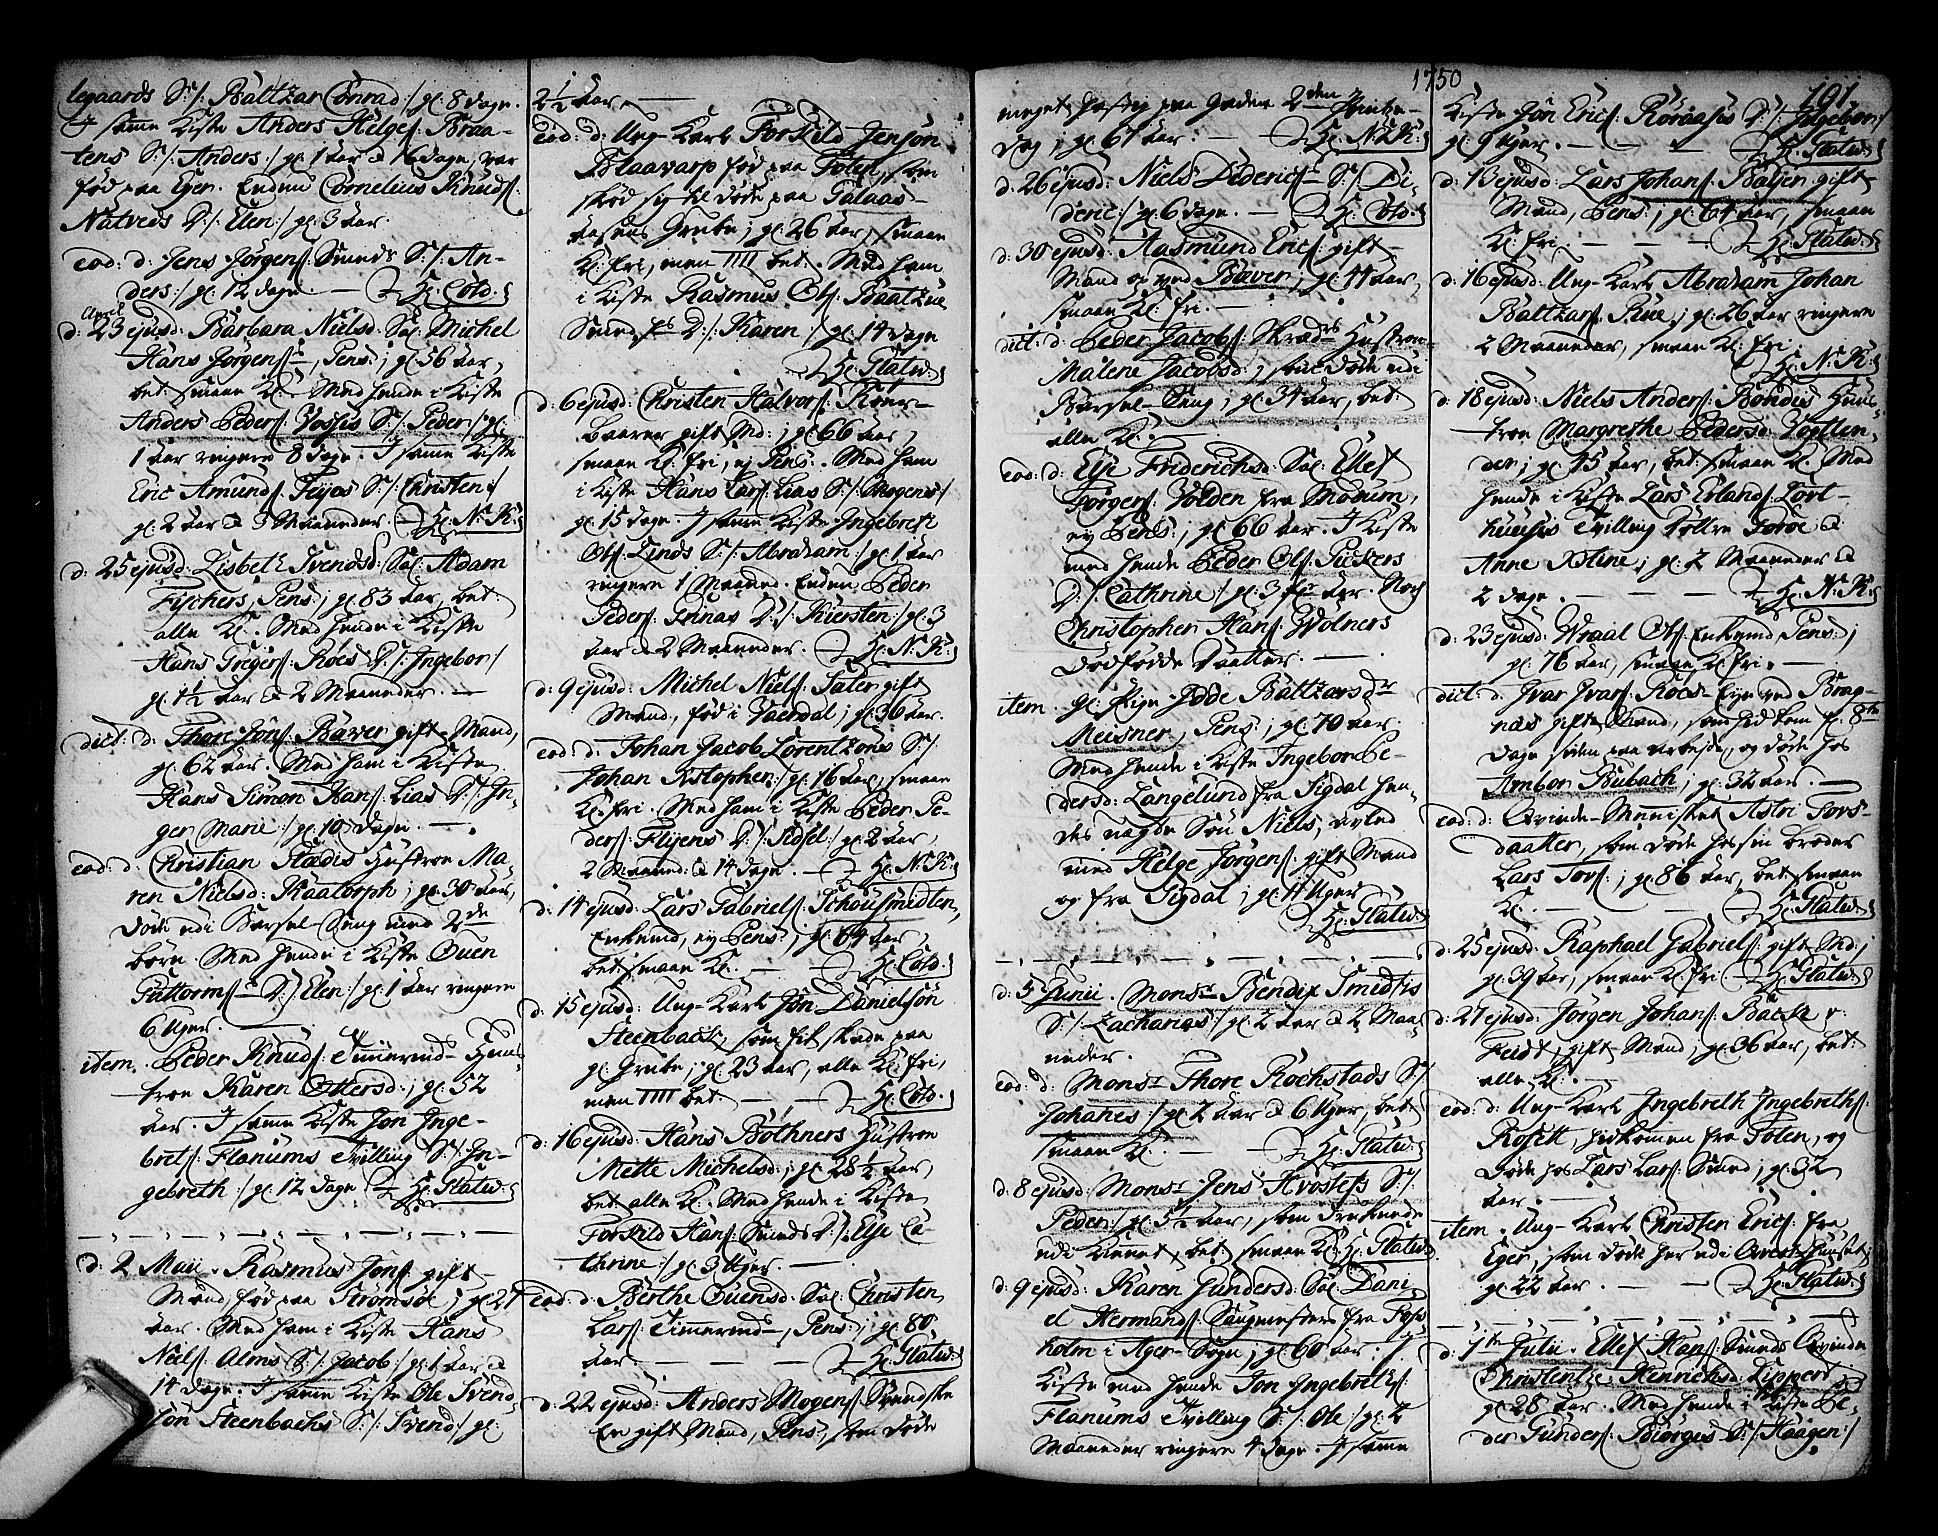 legaards S:/: Baltzar Conrad:/ gl: 8 dage.
I samme Kiste Anders Helges: Braa-
tens S:/: Anders:/ gl: 1 aar & 16 dage, var
fød paa Eger. Endnu Cornelius Knuds:
Natveds D:/: Elen:/ gl: 3 aar.
eod: d: Jens Jörgens: Smeds S:/: An-
ders:/ gl: 12 dage. — H: Cold:
April
d: 23 ejusd: Barbara Nielsd: Sal: Michel
Hans Jörgens:, Pens:; gl: 56 aar,
bet: smaae Kl: Med hende i Kiste
Anders Peders: Vossis S:/: Peder:/ gl:
1 aar ringere 8 dage. I samme Kiste
Eric Amunds: Teijes S:/: Christen:/
gl: 2 aar & 3 Maaneder. H: N: K:
d: 25 ejusd: Lisbeth Svendsd: Sal: Adam
Fischers, Pens:; gl: 83 aar, bet:
alle Kl: Med hende i Kiste
Hans Gregers: Roes D:/: Ingebor:/
gl: 1½ aar & 2 Maaneder. —
dict: d: Thor Jöns: Bäver gift Mand,
gl: 62 aar. Med ham i Kiste
Hans Simon Hans: Lias D:/: In-
ger Marie:/ gl: 10 dage. —
eod: d: Christian Hædis Hustroe Ma-
ren Nielsd: Kaatorph; gl: 30 aar,
døde udi Barsel Seng med 2de
børn. Med hende i Kiste Ouen
Guttorms: D:/ Elen:/ gl: 1 aar ringere
6 Uger. —
item. Peder Knuds: Timmermds Huus-
troe Karen Ottersd:; gl: 52
aar. I samme Kiste Jon Inge-
brets: Flanums Tvilling S:/ In-
gebreth:/ gl: 12 dage H: Statw:
d: 2 Maii. Rasmus Jons: gift
Mand fød paa Strömsöe; gl: 27
aar. Med ham i Kiste Hans
Niels: Alms S:/: Jacob:/ gl: 1 aar &
14 dage. I samme Kiste Ole Svend
sön Steenbachs S:/: Svend:/ gl:
2½ aar. —
eod: d: Ung-Karl Torkild Jensön
Blaavarp fød paa Toten, som
skød sig til døde paa Galaas-
aasens Grube; gl: 26 aar; smaae
Kl: fri, men IIII bet: Med ham
i Kiste Rasmus Ols: Baatzue
Smeds D:/: Karen:/ gl: 14 dage
H: Statw:
d: 6 ejusd: Christen Halvors: Koer-
baarer gift Md:; gl: 66 aar,
smaae Kl: fri, ej Pens:. Med ham
i Kiste Hans Lars: Lias S:/: Mogens:/
gl: 15 dage. I samme Kiste Ingebreth
Ols: Linds S:/: Abraham:/ gl: 1 aar
ringere 1 Maaned. Endnu Peder
Peders: Grinas D:/: Kiersten:/ gl: 3
aar & 2 Maaneder. H: N: K:
d: 9 ejusd: Michel Niels: Sater gift
Mand, fød i Vaerdal; gl: 36 aar.
eod: d: Johan Jacob Lorentzöns S:/
Johan Xstopher:/ gl: 16 aar; smaae
Kl: fri. Med ham i Kiste Peder Pe-
ders: Flijens D:/: Sidsel:/ gl: 2 aar,
2 Maaned: & 14 dage. — H: N: K:
d: 14 ejusd: Lars Gabriels: Schousmidten,
Enkemd, ey Pens:; gl: 64 aar;
bet: smaae Kl: — H: Cold:
d: 15 ejusd: Ung-Karl Jon Danielsön
Steenbach, som fik skade paa
gl: Grube; gl: 23 aar, alle Kl: fri,
men IIII bet — H: Cold:
d: 16 ejusd: Hans Böthners Hustroe
Mette Michelsd:; gl: 28½ aar,
bet alle Kl: Med hende i Kiste
Torkild Hans: Smeds D:/: Else Ca-
thrine:/ gl: 3 Uger. —
eod: d: Berthe Ouensd: Sal: Christen
Lars: Timmermds, Pens:; gl: 80
aar. — H: Statw:
d: 22 ejusd: Anders Mogens: Svendske
En gift Mand, Pens:, som døde
1750
meget hastig paa Gaden 2den Pintze-
dag; gl: 67 aar. — H: N: K:
d: 26 ejusd: Niels Diderics: S:/: Di-
deric:/ gl: 6 dage. — H: Cold:
d: 30 ejusd: Aasmund Erics: gift
Mand og ved Bäver; gl: 44 aar,
smaae Kl: fri. —
dict: d: Peder Jacobs: Skræd:rs Hustroe
Malene Jacobsd:; som døde udi
Barsel-Seng; gl: 34 aar, bet:
alle Kl: —
eod: d: Else Friderichsd: Sal: Ellef
Torgers: Volden fra Modum,
ey Pens:; gl: 66 aar. I Kiste
med hende Peder Ols: Pickers
D:/: Cathrine:/ gl: 3 aar. Noch
Christopher Hans: Wolners
Dödfödde Datter. —
item. gl: Pige Jodde Baltzarsdr
Meisner, Pens:; gl: 70 aar.
Med hende i Kiste Ingebor Pe-
dersd: Langelund fra Sigdal hen-
des uægte Sön Niels, avled
med Helge Jörgens: gift Mand
og fra Sigdal; gl: 11 Uger
H: Statw:
d: 5 Junii. Monsr Bendix Smidtis
S:/: Zacharias:/ gl: 2 aar & 2 Maa-
neder.
eod: d: Monsr Thore Rochstads S:/
Johanes:/ gl: 2 aar & 6 Uger, bet:
smaae Kl: — H: Statw:
d: 8 ejusd: Monsr Jens Hvostefs S:/
Peder:/ gl: 5½ aar, som druknede
udi Elvet, bet: smaae Kl: H: Statw:
d: 9 ejusd: Karen Gundersd: Sal: Dani-
el Hermands: Saugmesters fra Foss
holm i Ager Sogn; gl: 60 aar. I
Kiste med hende Jon Ingebrets:
Flanums Tvilling S:/: Ole:/ gl: 2
Maaneder ringere 4 dage. I samme
191
Kiste Jon Erics: Röraasis D:/: Ingebor:/
gl: 9 Uger. — H: Statw:
d: 13 ejusd: Lars Johans: Baljer gift
Mand, Pens:; gl: 64 aar, smaae
Kl: fri. — H: Statw:
d: 16 ejusd: Ung-Karl Abraham Johan
Baltzars: Rue; gl: 26 aar ringere
2 Maaneder, smaae Kl: fri
H: N: K:
d: 18 ejusd: Niels Anders: Bondis Huus-
troe Margrethe Pedersd: Vogtlen-
der; gl: 45 aar, bet: smaae Kl: Med
hende i Kiste Lars Erlands: Lort-
huusis Tvilling Döttre Torbe &
Anne Xstine; gl: 2 Maaneder &
2 dage. — H: N: K:
d: 23 ejusd: Wraal Ols: Enkemd Pens:;
gl: 76 aar, smaae Kl: fri. —
dict: d: Ivar Ivars: Röest Eije ved Brag-
næs gift Mand, som hid kom p: 8te
dage siden paa Arbejde, og døde hos
Ambor Bubach; gl: 32 aar. —
eod: d: Qvinde-Mennisket Astri Tors-
daatter, som døde hos sin broder
Lars Tors:; gl: 86 aar, bet: smaae
Kl: — H: Statw:
d: 25 ejusd: Raphael Gabriels: gift Md:;
gl: 39 aar, smaae Kl: fri H: Statw:
d: 27 ejusd: Jörgen Johans: Bæck v:
Feidt, gift Mand; gl: 36 aar, bet:
alle Kl: —
eod: d: Ung-Karl Ingebreth Ingebreths:
Rosett, hidkommen fra Toten, og
døde hos Lars Lars: Smed; gl: 32
aar. —
item. Ung-Karl Christen Erics: fra
Eger, som døde her udi Qvest-Huuset;
gl: 22 aar. — H: Statw:
d: 1te Julii. Ellef Hans: Smeds Qvinde
Christentze Henrichsd: Lippert
gl: 28 aar. Med hende i Kiste Pe-
der Gunders: Biörges S:/: Haagen:/